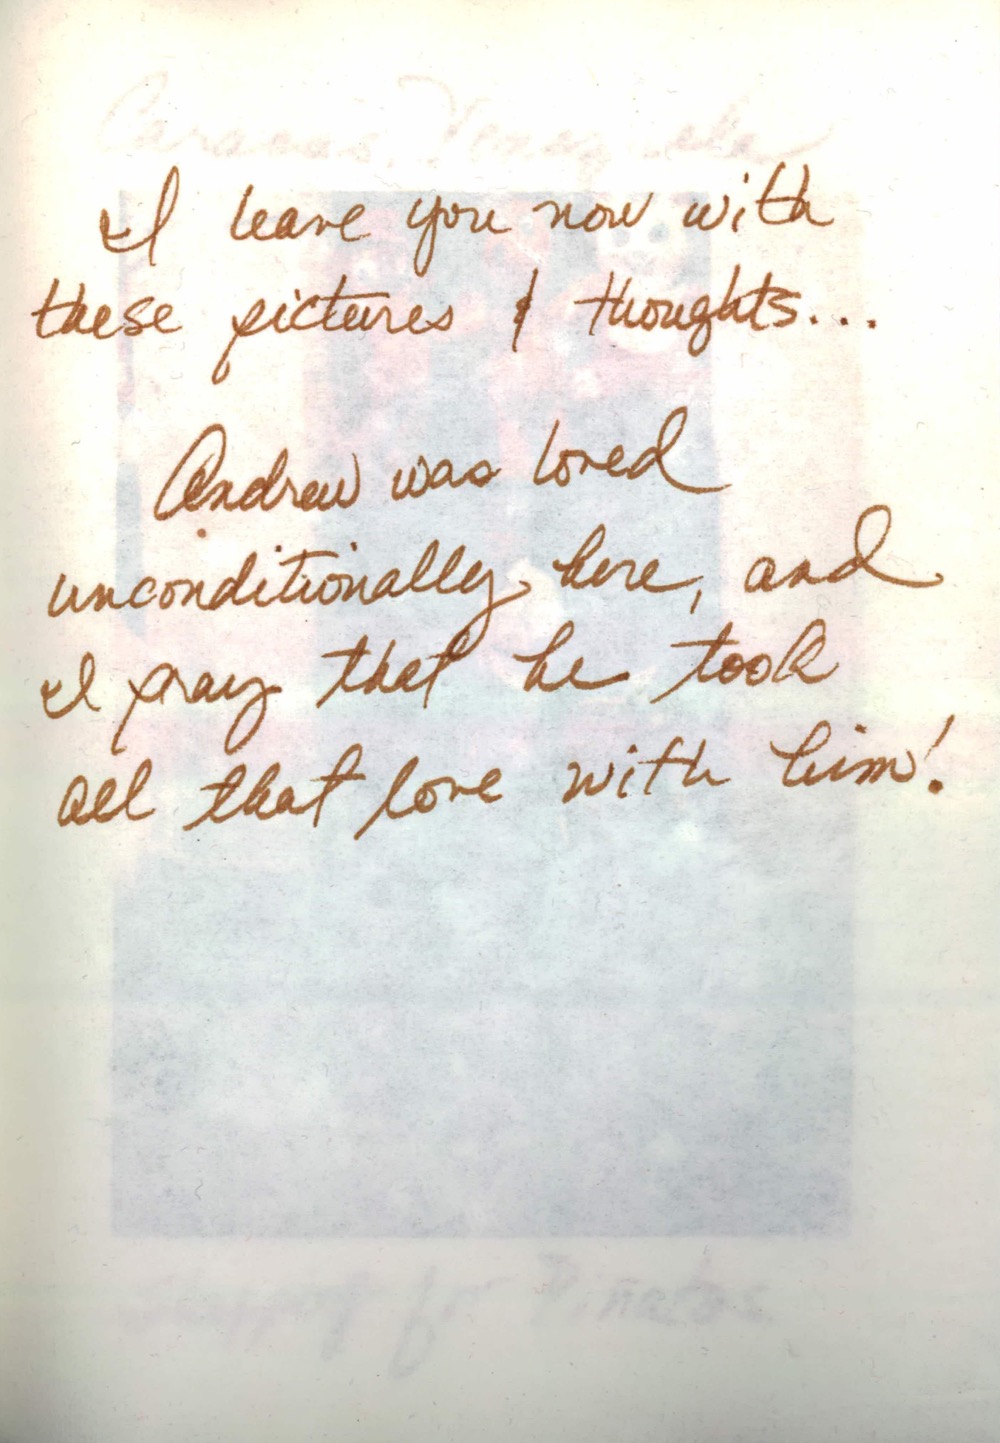 Caracas, Venezuela
I leave you now with
these pictures & thoughts...
Andrew was loved
unconditionally, here, and
I pray that he took
all that love with him!
for Piñatas